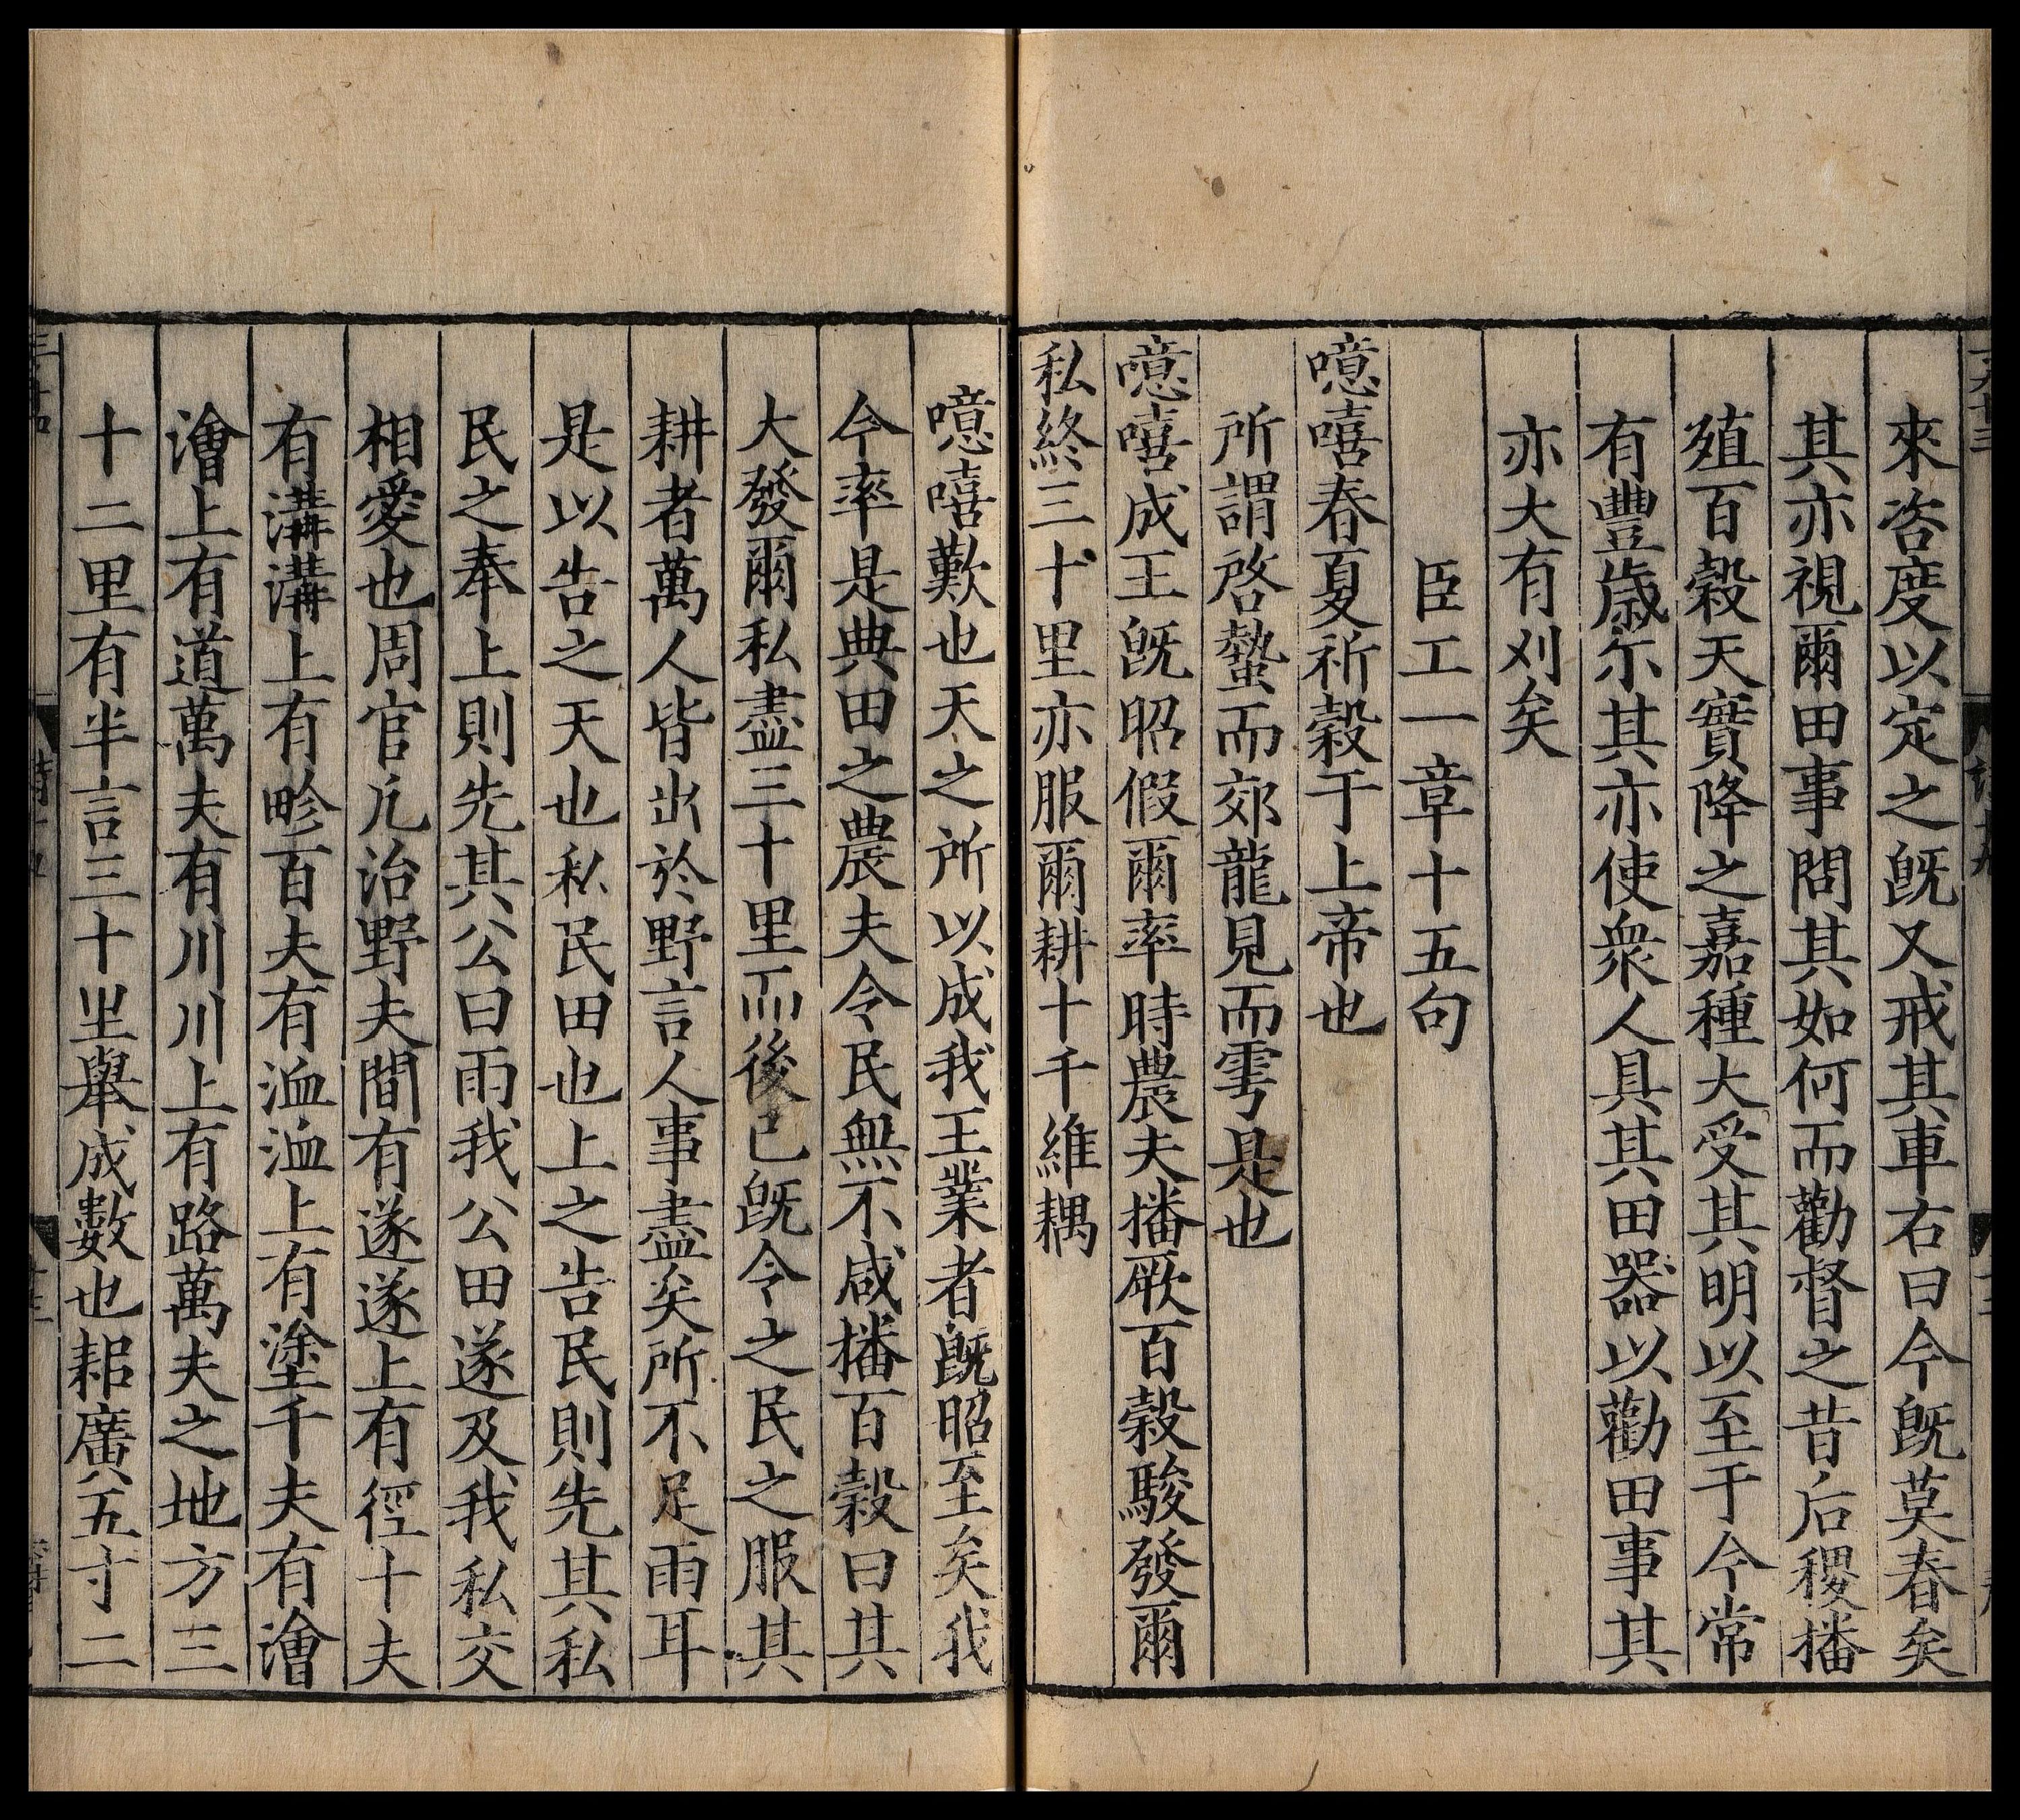 來咨度以定之旣又戒其車右曰今旣莫春矣
其亦視爾田事問其如何而勸督之昔后稷播
殖百穀天實降之嘉種大受其明以至于今常
有豐歲尓其亦使衆人具其田器以勸田事其
亦大有刈矣
臣工一章十五句
噫嘻春夏祈穀于上帝也
所謂啓蟄而郊龍見而雩是也
噫嘻成王旣昭假爾率時農夫播厥百穀駿發爾
私終三十里亦服爾耕十千維耦
噫嘻歎也天之所以成我王業者旣昭至矣我
今率是典田之農夫令民無不咸播百穀曰其
大發爾私盡三十里而後已旣令之民之服其
耕者萬人皆出於野言人事盡矣所不足雨耳
是以告之天也私民田也上之告民則先其私
民之奉上則先其公曰雨我公田遂及我私交
相愛也周官凡治野夫間有遂遂上有徑十夫
有溝溝上有畛百夫有洫洫上有塗千夫有澮
澮上有道萬夫有川川上有路萬夫之地方三
十二里有半言三十里舉成數也耜廣五寸二